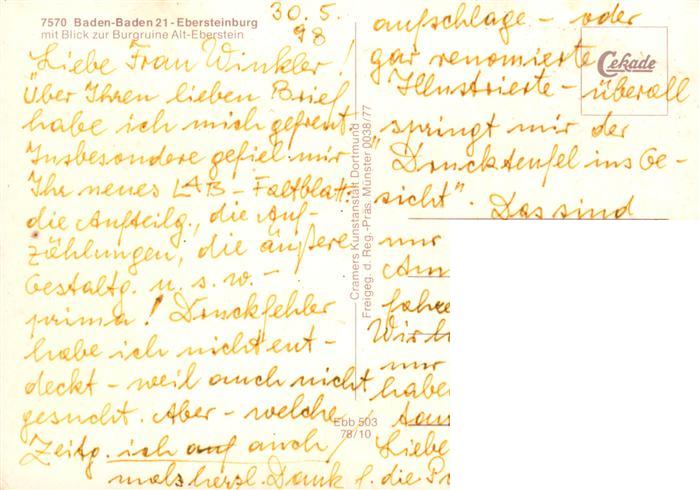 7570 Baden-Baden 21 - Ebersteinburg
mit Blick zur Burgruine Alt-Eberstein
30.5.
98
Liebe Frau Winkler!
Über Ihren lieben Brief
habe ich mich gefreut.
Insbesondere gefiel mir
Ihr neues LAB-Faltblatt:
die Aufteilg., die Auf-
zählungen, die äußere
Gestaltg. u. s. w. -
prima! Druckfehler
habe ich nicht ent-
deckt - weil auch nicht
gesucht. Aber - welche
Zeitg. ich auf auch/
aufschlage - oder
gar renomierte
Illustrierte - überall
springt mir der
"Druckteufel ins Ge-
sicht". Das sind
nur
fahre
Wir h
nur
habe
Liebe
die Pr
mals herzl. Dank f.
Cekade
Cramers Kunstanstalt Dortmund
Freigeg. d. Reg.-Präs. Münster 0038/77
Ebb 503
78/10